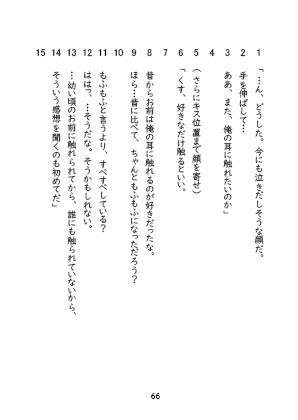 1 「…ん、どうした。今にも泣きだしそうな顔だ。
2 手を伸ばして…
3 ああ、また、俺の耳に触れたいのか」
4
5 （さらにキス位置まで顔を寄せ）
6 「くす、好きなだけ触るといい。
7
8 昔からお前は俺の耳に触れるのが好きだったな。
9 ほら…昔に比べて、ちゃんともふもふになっただろう？
10
11 もふもふと言うより、すべすべしている？
12 ははっ、…そうだな。そうかもしれない。
13 …幼い頃のお前に触れられてから、誰にも触られていないから、
14 そういう感想を聞くのも初めてだ」
15
66